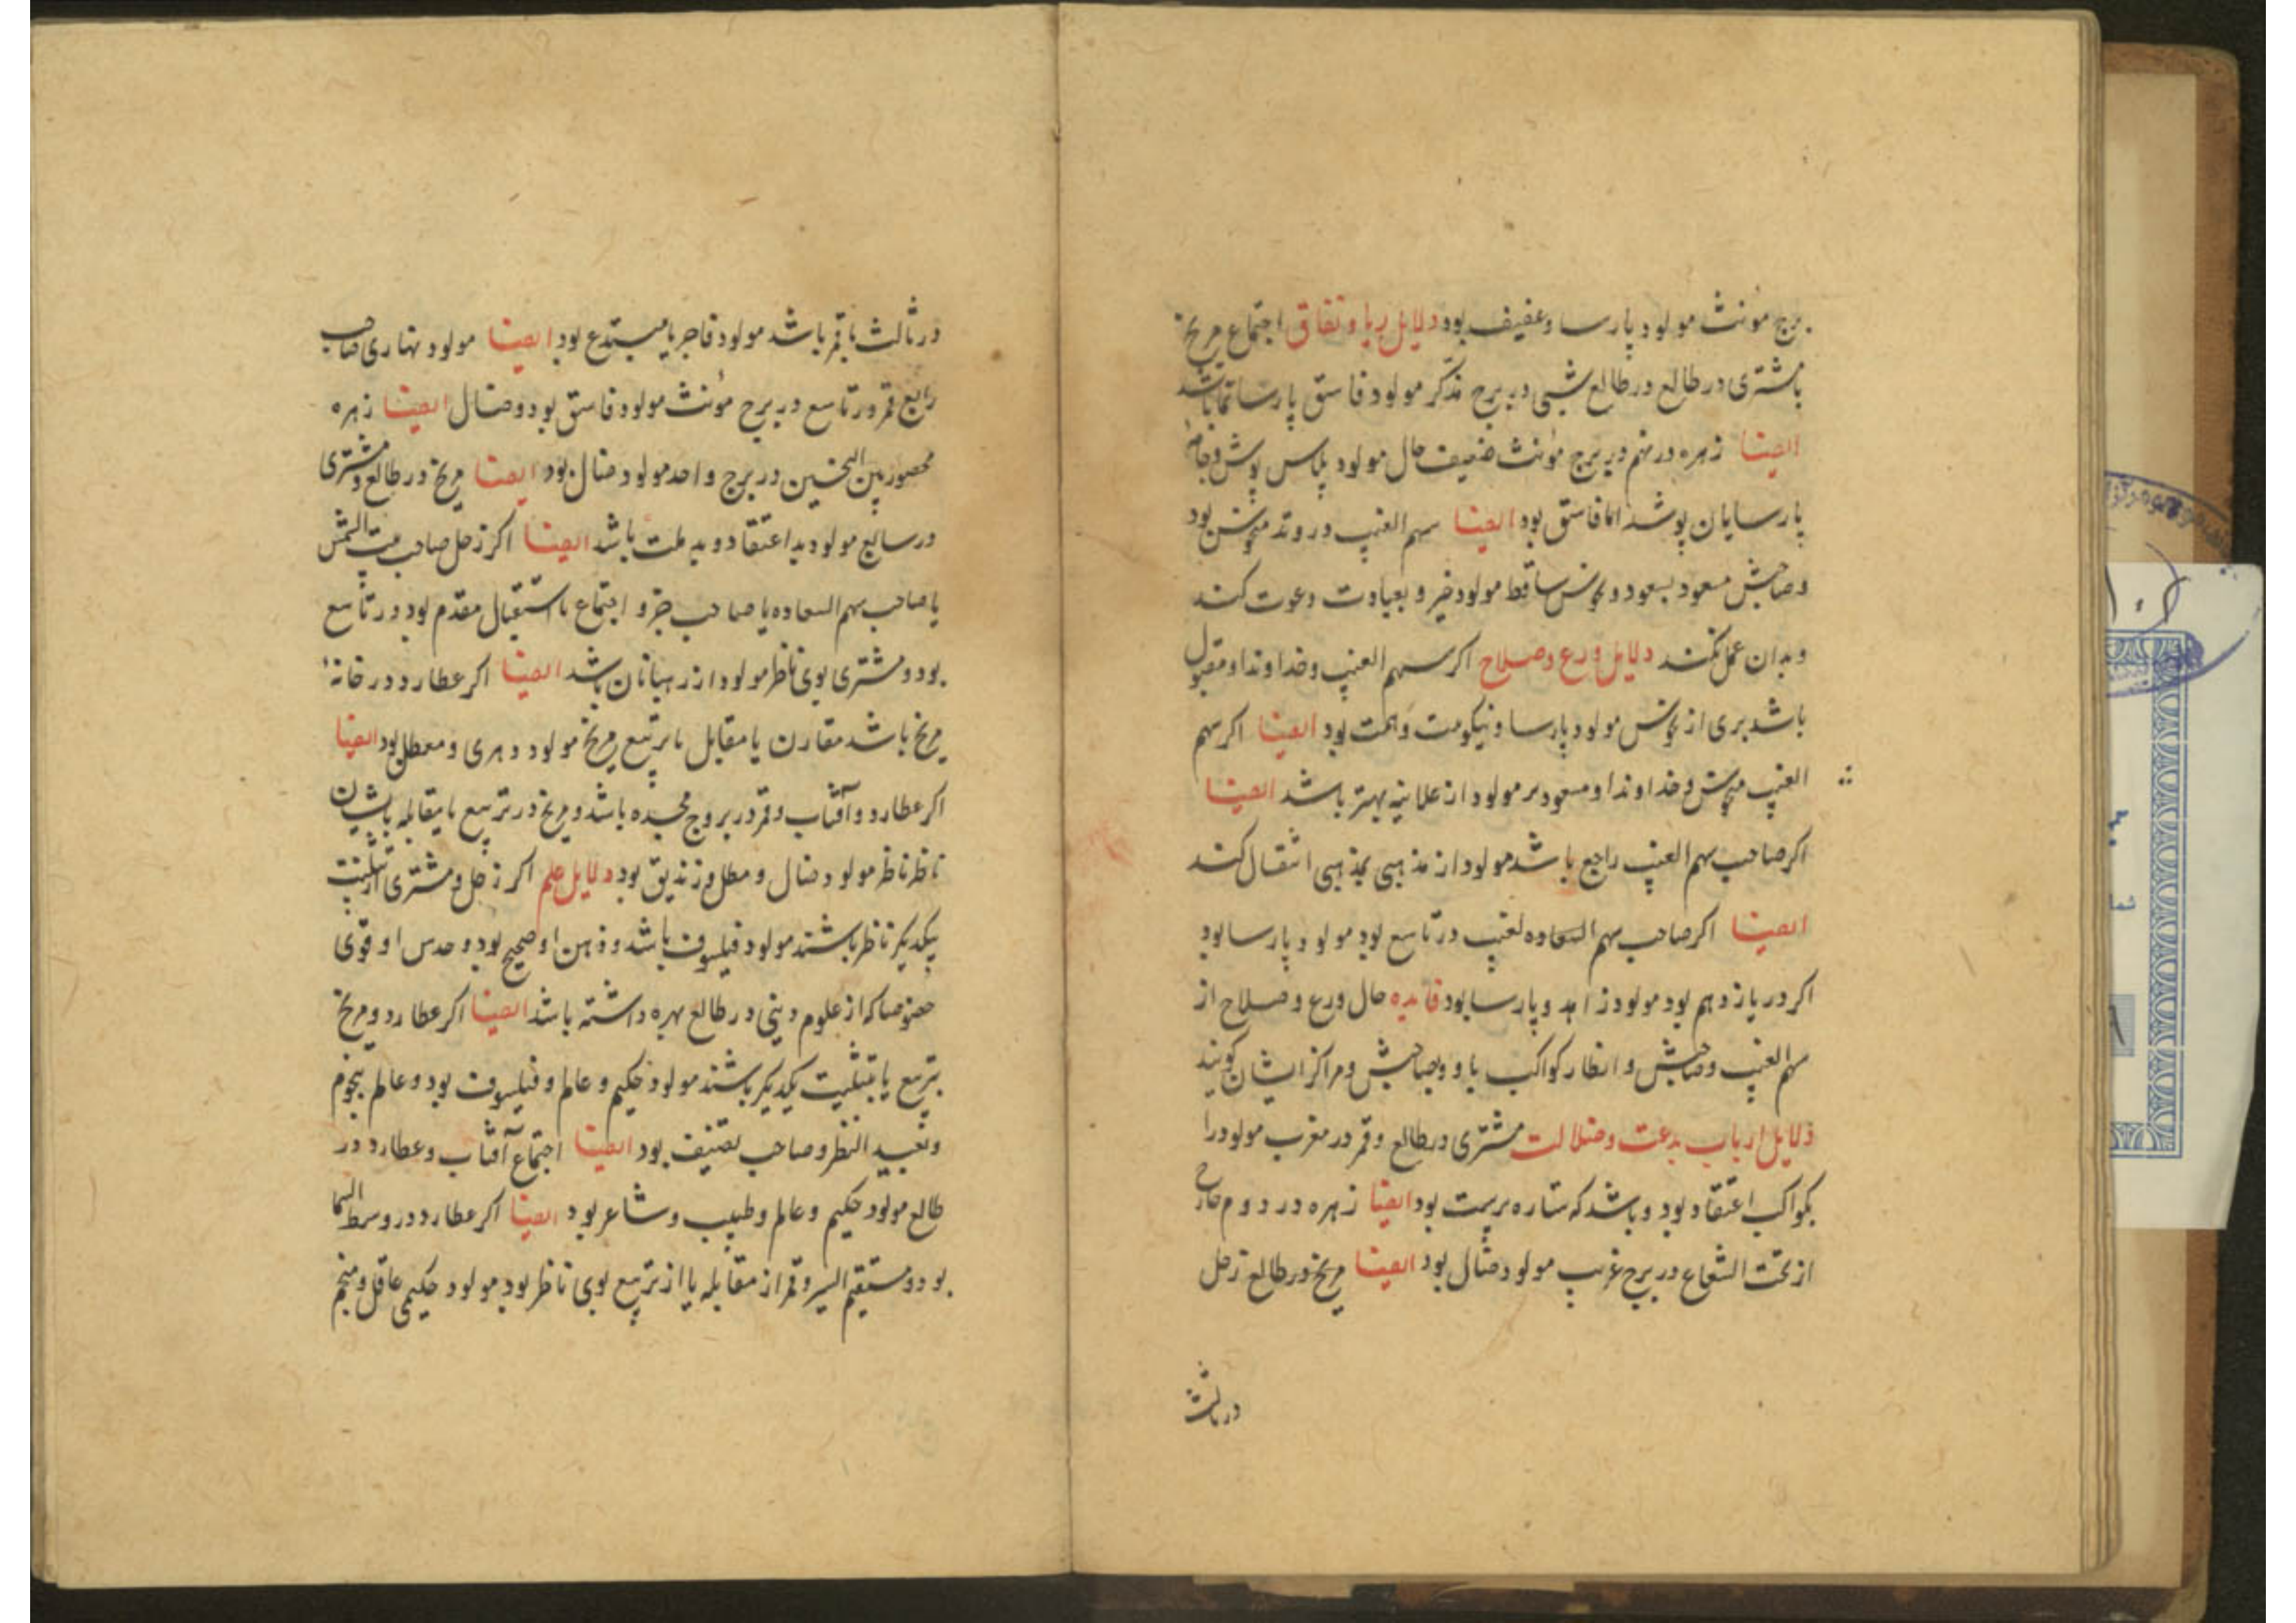 برج مؤنث مولود پارسا و عفیف بود دلایل ریا و نفاق اجتماع مریخ
با مشتری در طالع در طالع شبی در برج مذکر مولود فاسق پارسا نما باشد
ایضا زهره در نهم در برج مؤنث ضعیف حال مولود پلاس پوش و جامهٔ
پارسایان پوشد اما فاسق بود ایضا سهم الغیب در وتد منحوس بود
و صاحبش مسعود بسعود و نحوس ساقط مولود خیر و بعبادت دعوت کند
و بدان عمل نکند دلایل ورع و صلاح اکر سهم الغیب و خداوند او مقبول
باشد بری از نحوس مولود پارسا و نیکو سمت و همت بود ایضا اکر سهم
الغیب منحوس و خداوند او مسعود سر مولود از علانیه بهتر باشد ایضا
اکر صاحب سهم الغیب راجع باشد مولود از مذهبی بمذهبی انتقال کند
ایضا اکر صاحب سهم السعاده لغیب در تاسع بود مولود پارسا بود
اکر در یازدهم بود مولود زاهد و پارسا بود فایده حال ورع و صلاح از
سهم الغیب و صاحبش و انظار کواکب با و وبصاحبش و مراکز ایشان کویند
دلایل ارباب بدعت و ضلالت مشتری در طالع و قمر در مغرب مولود را
بکواکب اعتقاد بود و باشد که ستاره پرست بود ایضا زهره در دوم خارج
از تحت الشعاع در برج غریب مولود ضال بود ایضا مریخ در طالع زحل
در ثالث
در ثالث با قمر باشد مولود فاجر یا مبتدع بود ایضا مولود نهاری صاحب
رابع قمر در تاسع در برج مؤنث مولود فاسق بود و ضال ایضا زهره
محصور بین النحسین در برج واحد مولود ضال بود ایضا مریخ در طالع و مشتری
در سابع مولود بد اعتقاد و بد ملت باشد ایضا اکر زحل صاحب بیت الشمس
یا صاحب سهم السعاده یا صاحب جزو اجتماع یا استقبال مقدم بود در تاسع
بود و مشتری بوی ناظر مولود از رهبانان باشد ایضا اکر عطارد در خانهٔ
مریخ باشد مقارن یا مقابل یا بتربیع مریخ مولود دهری و معطل بود ایضا
اکر عطارد و آفتاب و قمر در بروج مجسده باشد و مریخ در تربیع یا بمقابله بایشان
ناظر ناظر مولود ضال و مطل و زندیق بود دلایل علم اکر زحل و مشتری از تثلیث
یکدیکر ناظر باشند مولود فیلسوف باشد و ذهن او صحیح بود و حدس او قوی
خصوصا که از علوم دینی در طالع بهره داشته باشد ایضا اکر عطارد و مریخ
بتربیع یا بتثلیث یکدیکر باشند مولود حکیم و عالم و فیلسوف بود و عالم بنجوم
و بعید النظر و صاحب تصنیف بود ایضا اجتماع آفتاب و عطارد در
طالع مولود حکیم و عالم و طبیب و شاعر بود ایضا اکر عطارد در وسط السما
بود و مستقیم السیر و قمر از مقابله یا از تربیع بوی ناظر بود مولود حکیمی عاقل و منجم